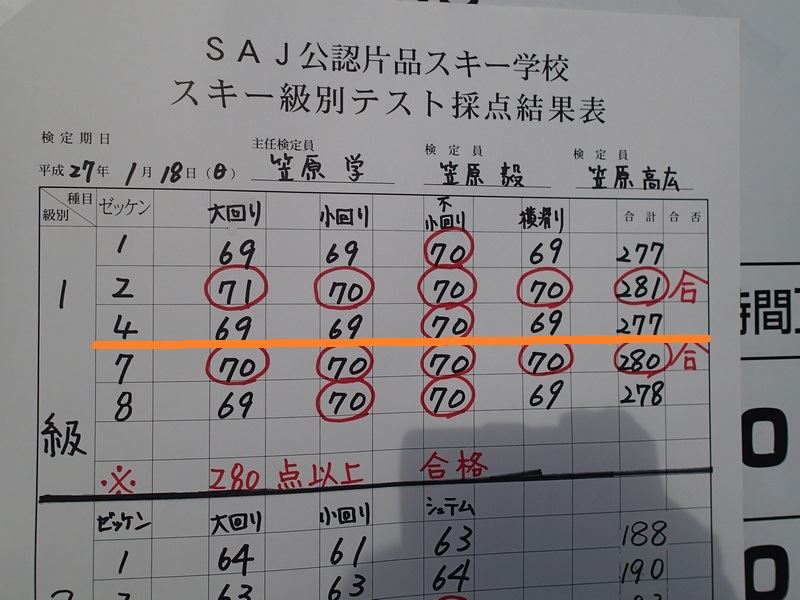 SAJ公認片品スキー学校
スキー級別テスト採点結果表
検定期日 主任検定員 検定員 検定員
平成27年1月18日(日) 笠原 学 笠原 毅 笠原高広
種目 級別 ゼッケン 大回り 小回り 不小回り 横滑り 合計 合否
1 69 69 70 69 277
1 2 71 70 70 70 281 合
4 69 69 70 69 277
7 70 70 70 70 280 合
8 69 70 70 69 278
級
※ 280点以上 合格
ゼッケン 大回り 小回り シュテム
1 64 61 63 188
63 63 64 190
時間
0